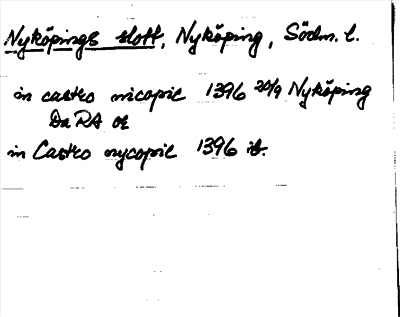 Nyköpings slott, Nyköping, Södm. l.
in castro nicopie 1396 20/9 Nyköping
Da RA or
in Castro nycopie 1396 ib.